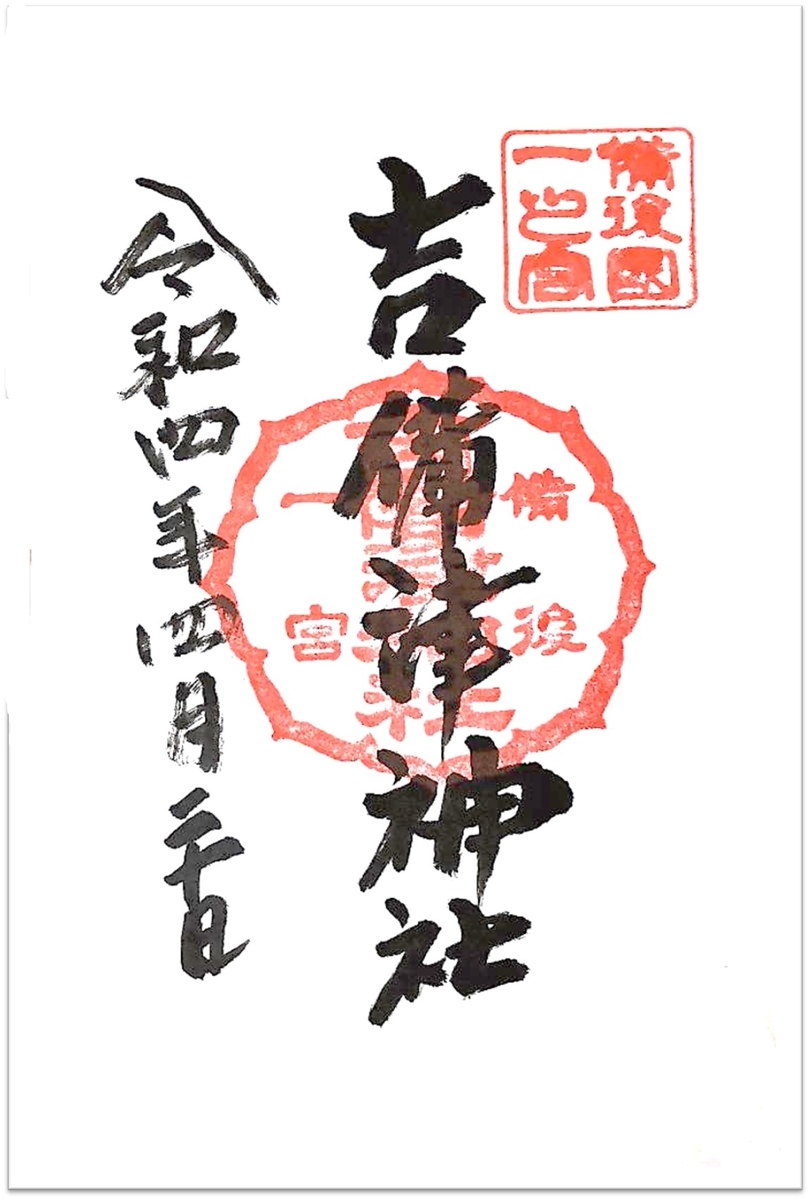 備後國
一之宮
吉備津神社
備後
一宮
令和四年四月二十日